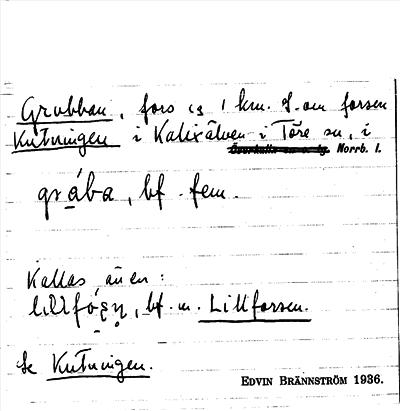 Grubban, fors c:a 1 km. S. om forsen
Kutningen i Kalixälven i Töre sn, i
Norrb. l.
gråba, bf. fem.
Kallas även:
bf. m. Lillforsen.
Se Kutningen.
EDVIN BRÄNNSTRÖM 1936.